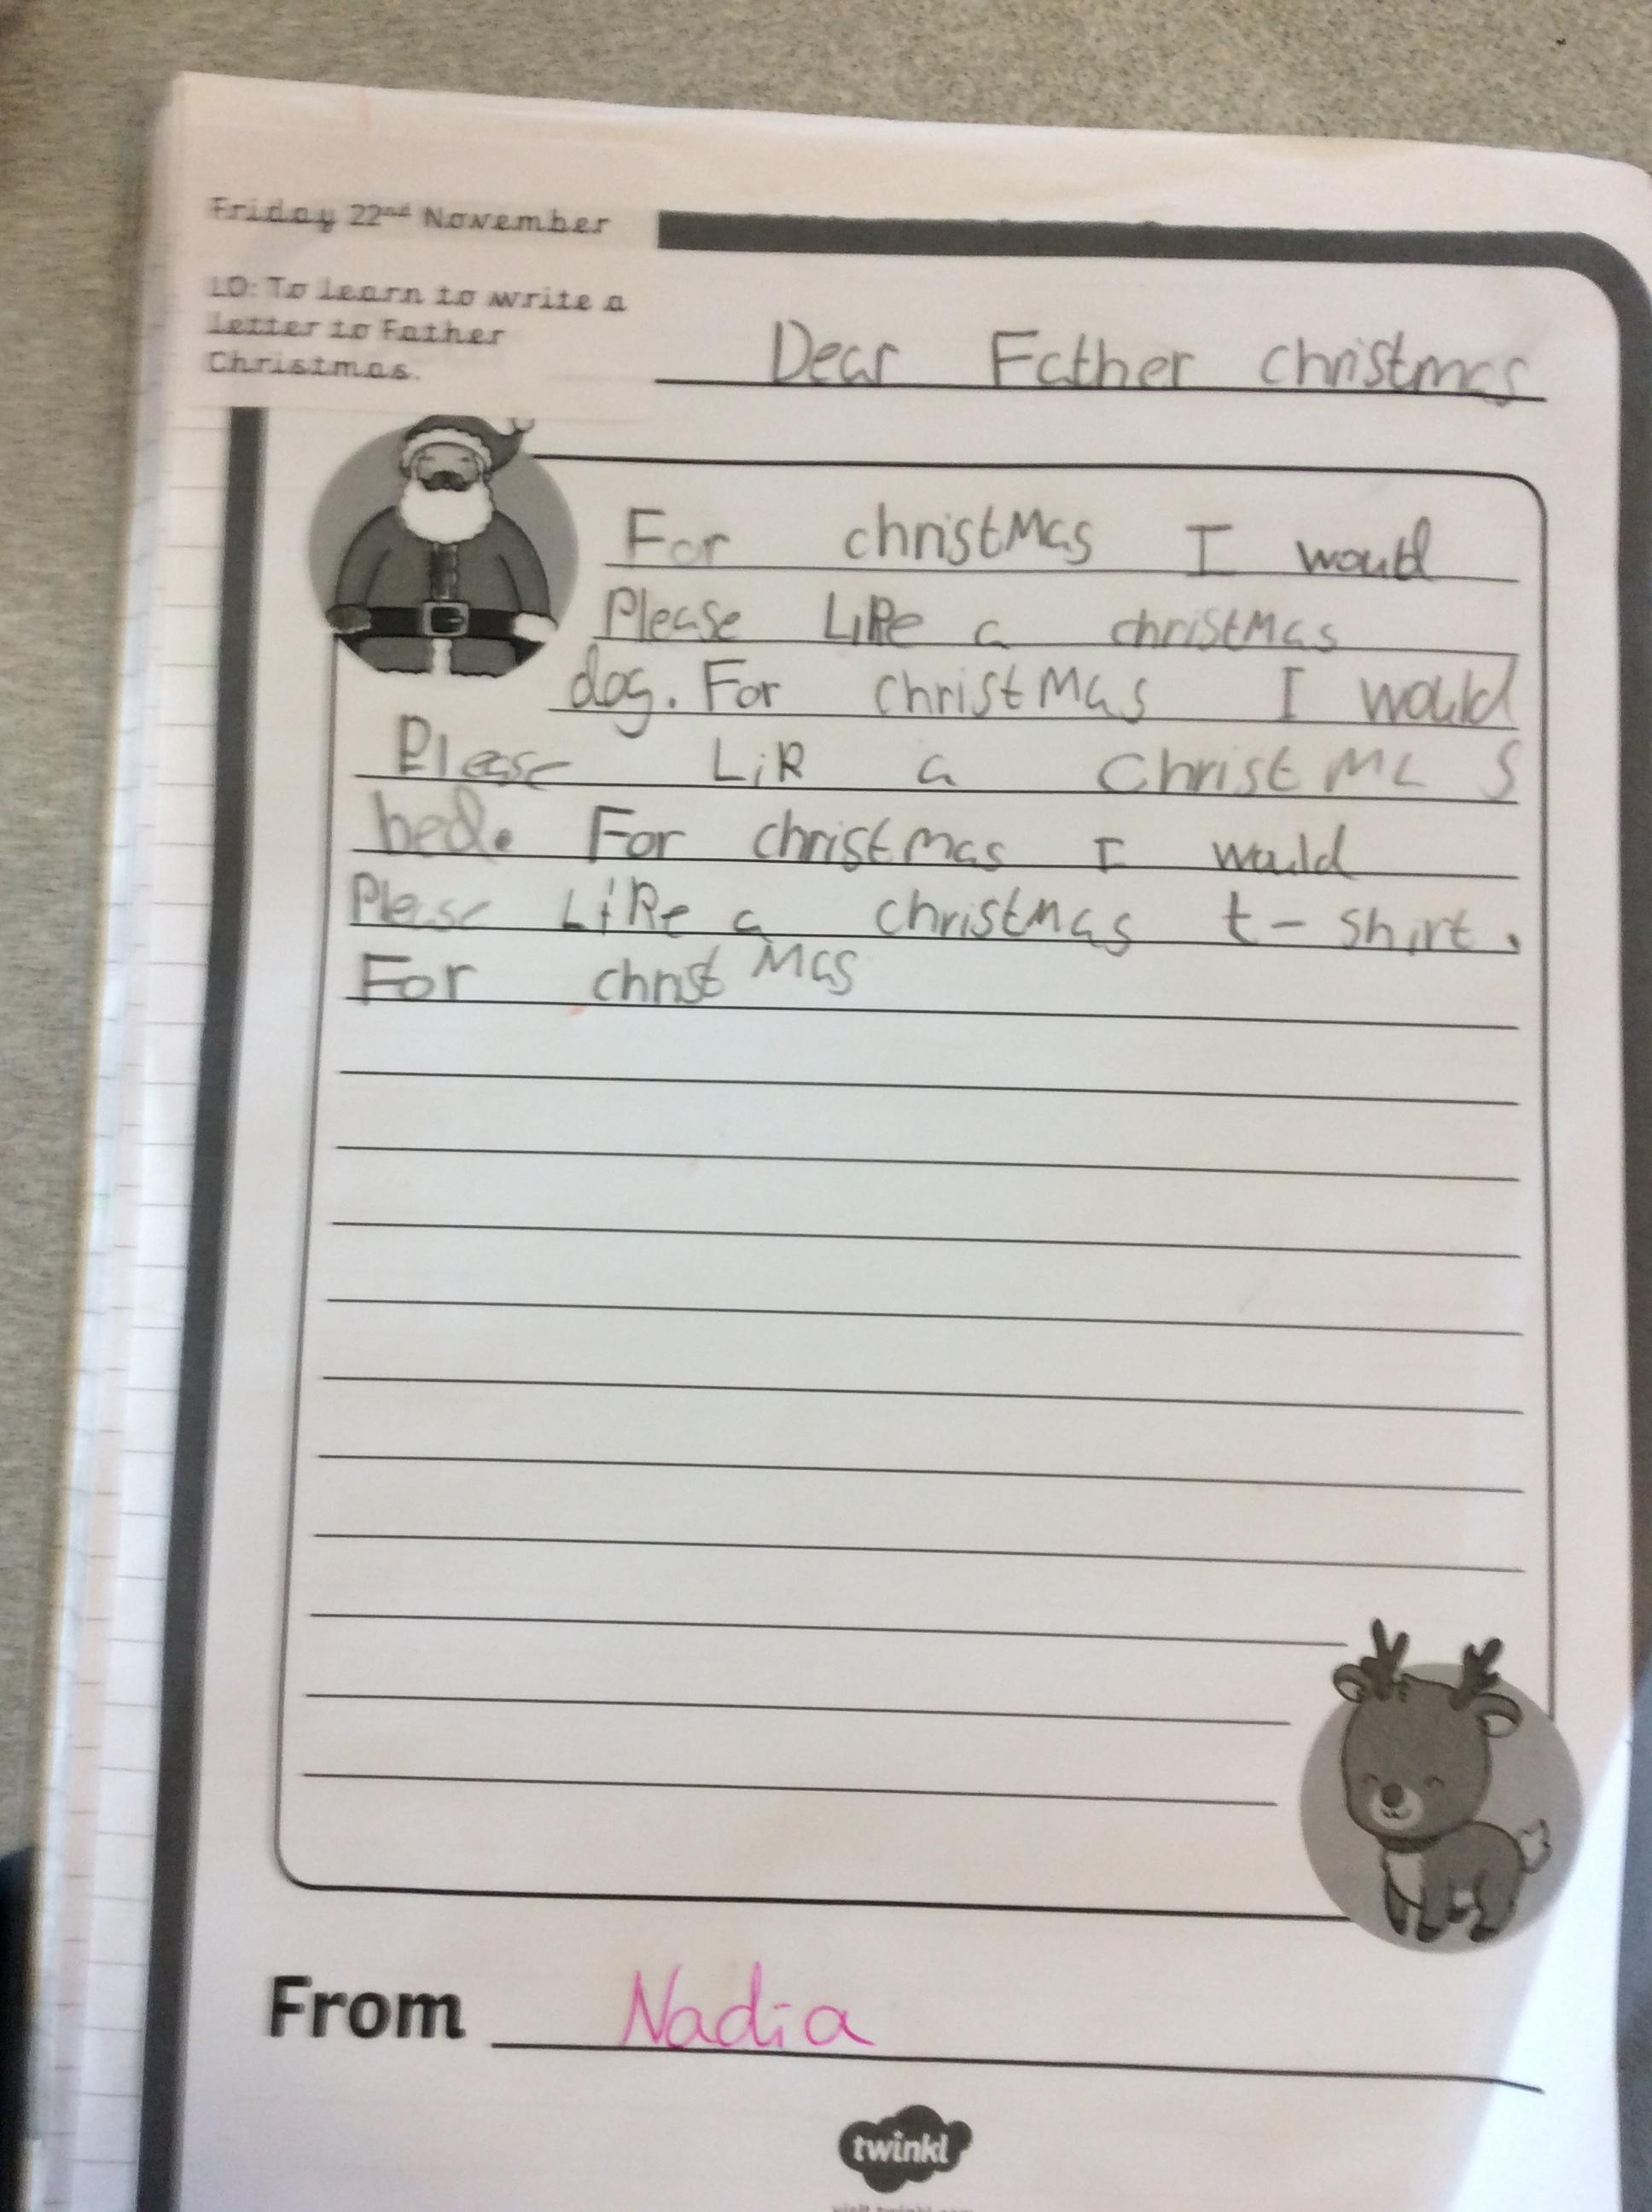 Friday 22nd November
LO: To learn to write a
letter to Father
Christmas.
Dear Father christmas
For christMas I would
Please LiRe a christMas
dog. For christMas I would
Please LiR a ChristMas
bed. For christmas I would
Please LiRe a christmas t-shirt.
For christMas
From Nadia
twinkl